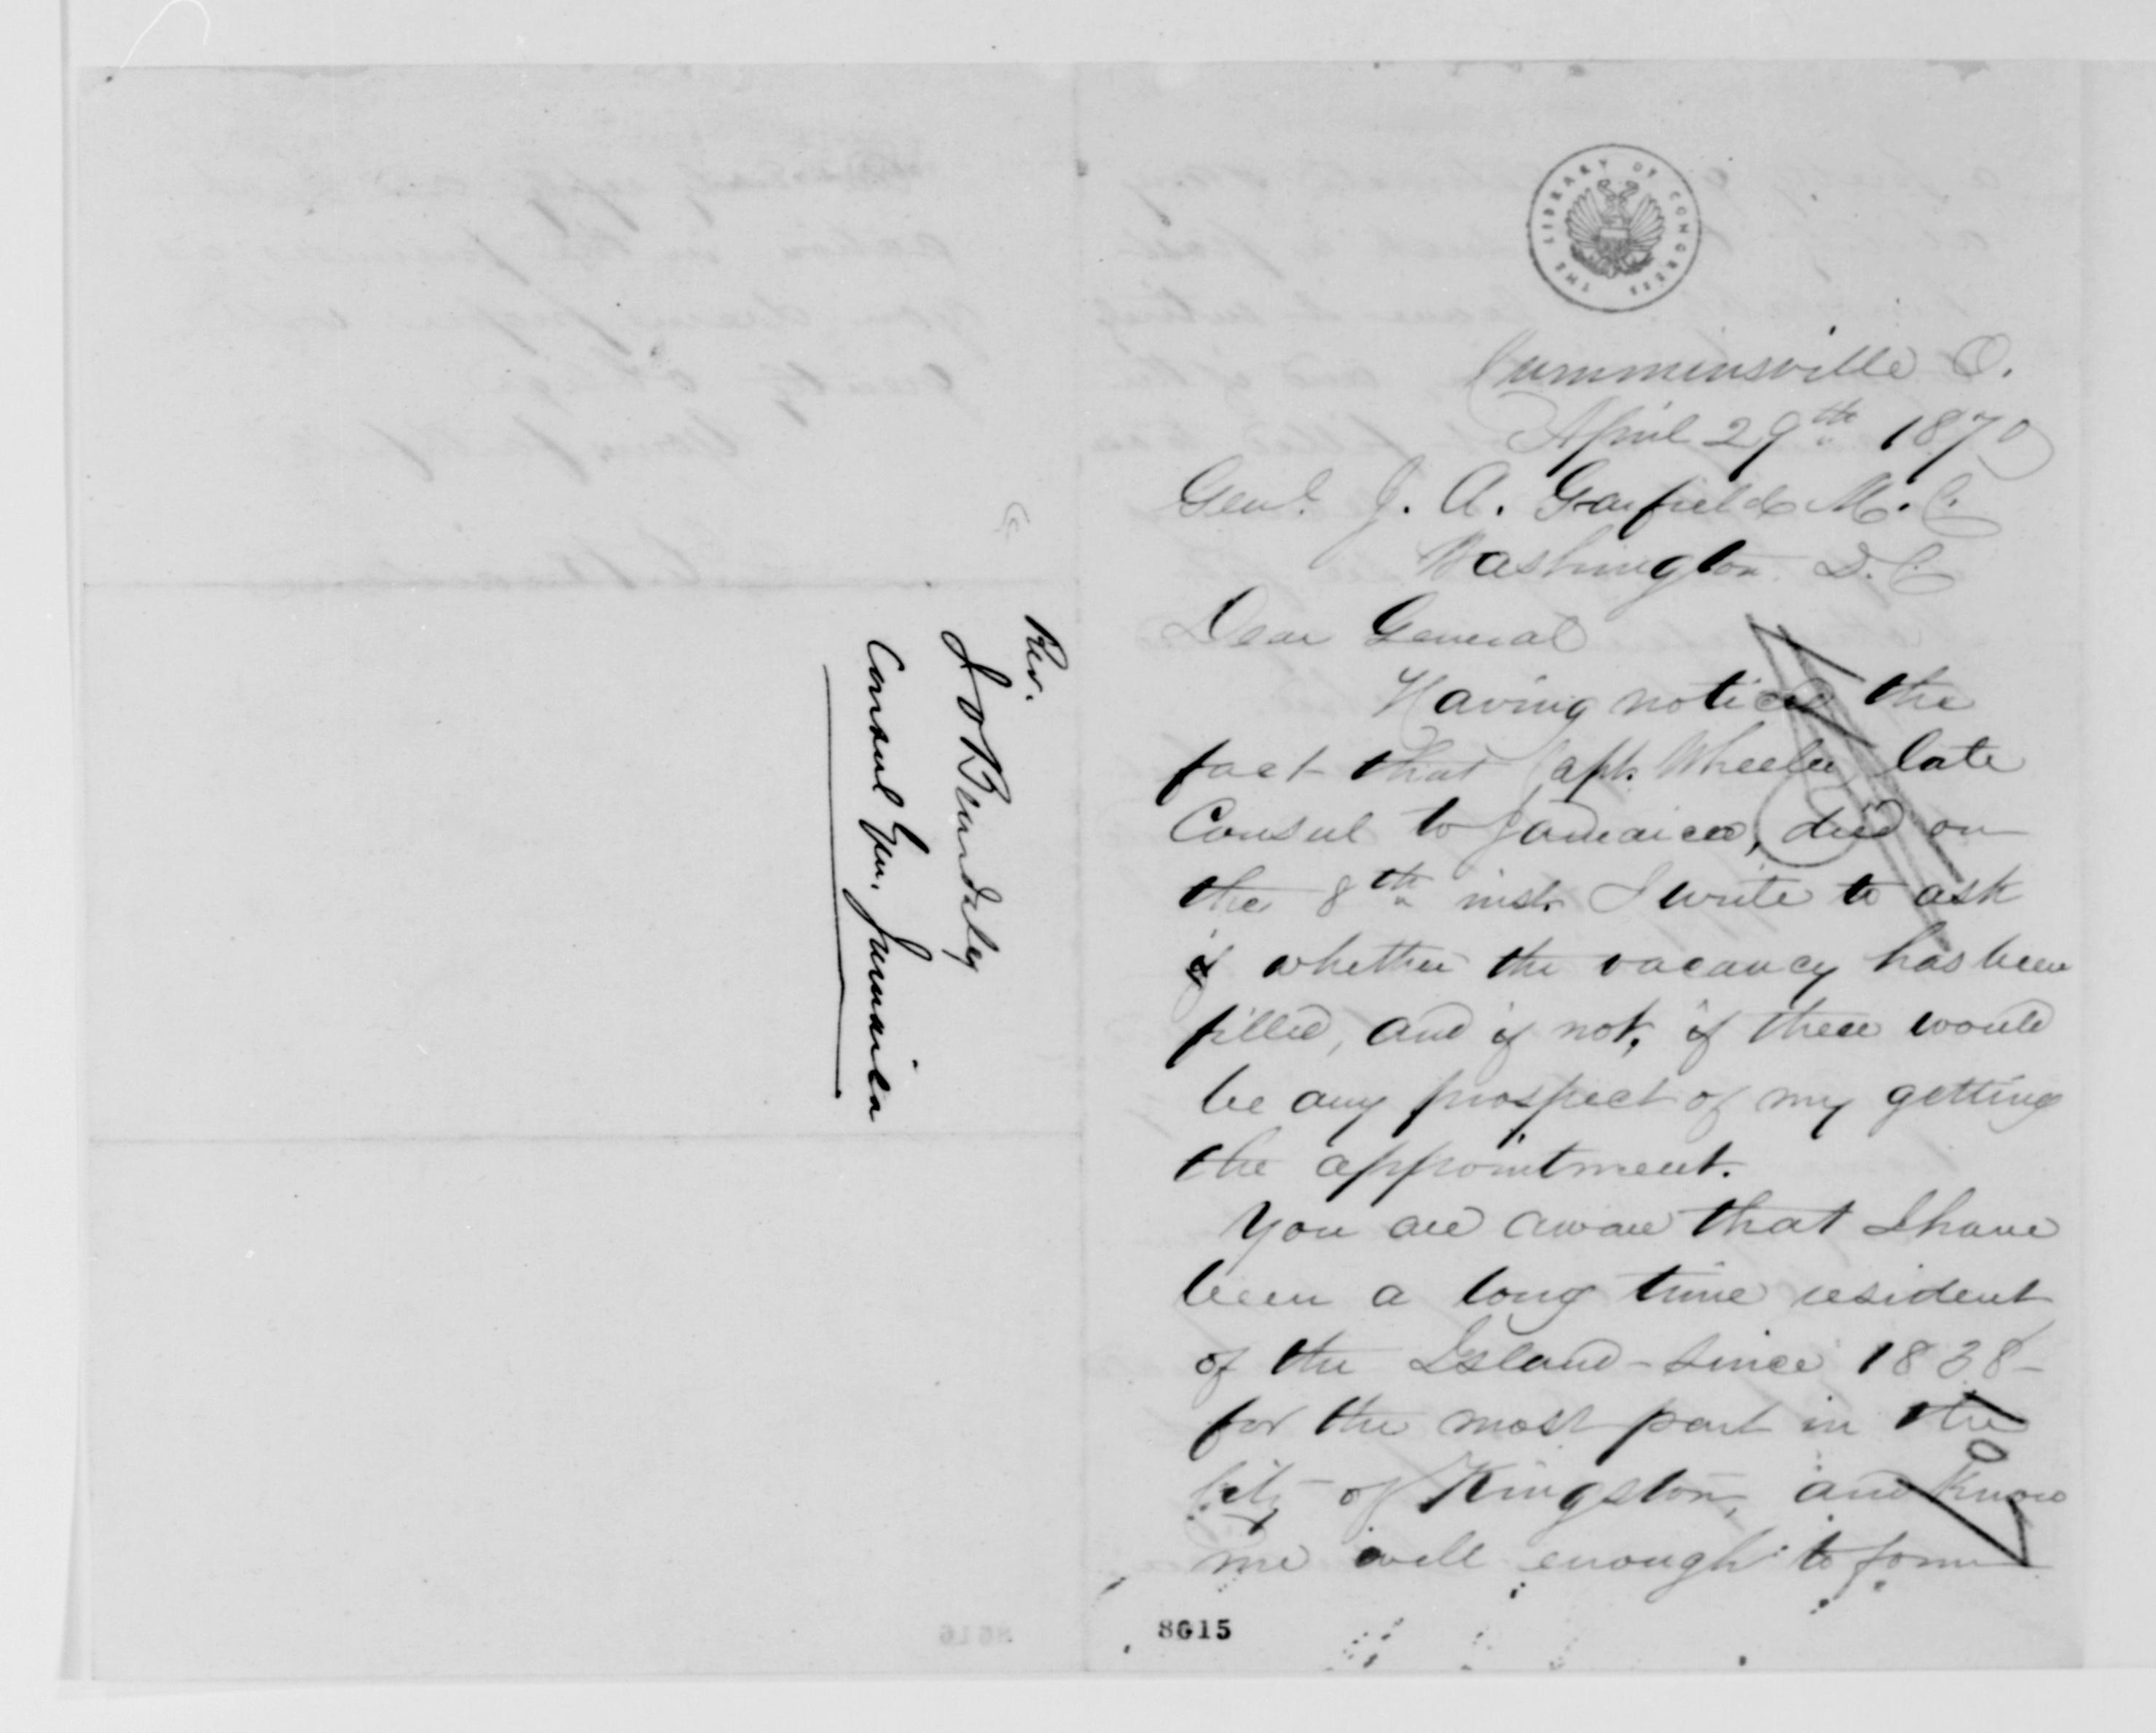 THE LIBRARY OF CONGRESS
Cumminsville O.
April 29th 1870
Genl. J. A. Garfield M. C.
Washington D. C.
Dear General
Having noticed the
fact that Capt. Wheeler late
Consul to Jamaica, died on
the 8th inst. I write to ask
if whether the vacancy has been
filled, and if not, if there would
be any prospect of my getting
the appointment.
You are aware that I have
been a long time resident
of the Island - since 1838 -
for the most part in the
City of Kingston, and know
me well enough to form
8615
Rev.
J O Beardsley
Consul Gen. Jamaica